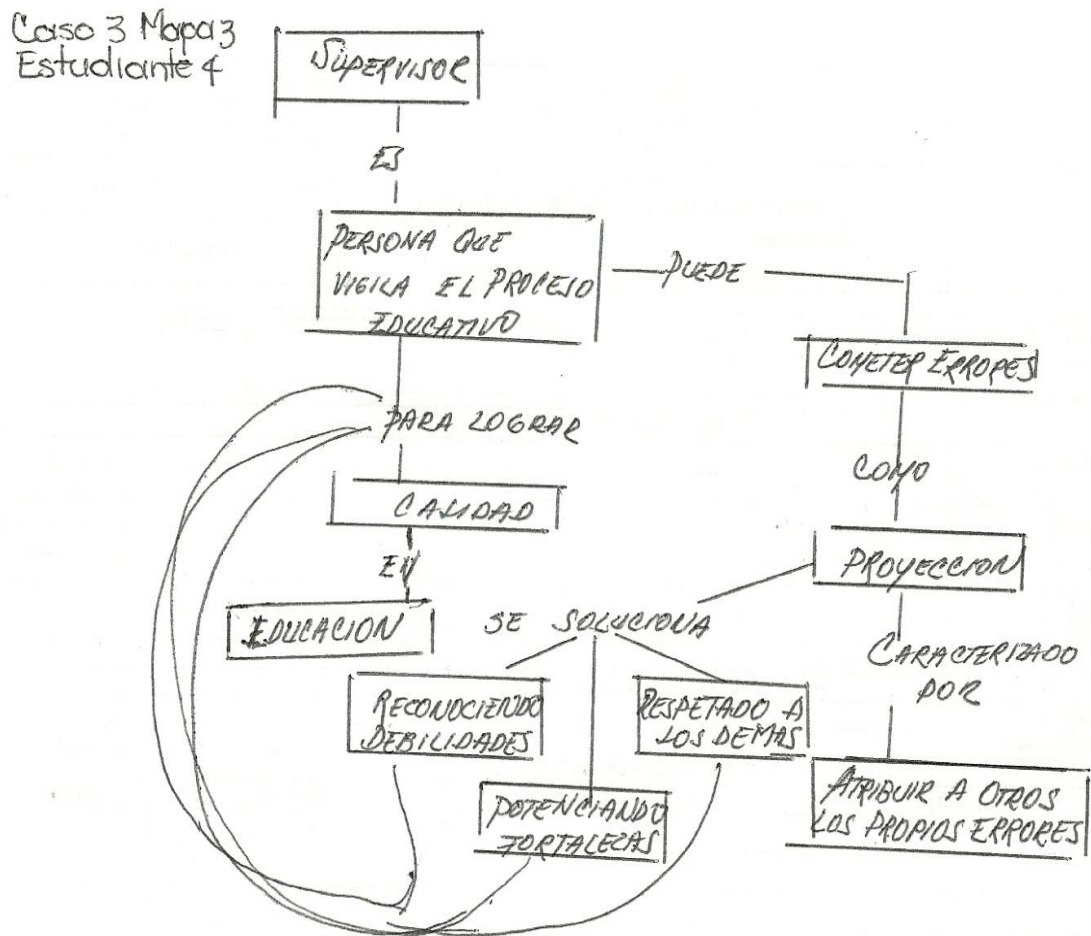 Caso 3 Mapa 3
Estudiante 4
SUPERVISOR
ES
PERSONA QUE
VIGILA EL PROCESO
EDUCATIVO
PUEDE
COMETER ERRORES
PARA LOGRAR
COMO
CALIDAD
EN
PROYECCION
EDUCACION
SE SOLUCIONA
CARACTERIZADO
POR
RECONOCIENDO
DEBILIDADES
RESPETADO A
LOS DEMAS
POTENCIANDO
FORTALEZAS
ATRIBUIR A OTROS
LOS PROPIOS ERRORES